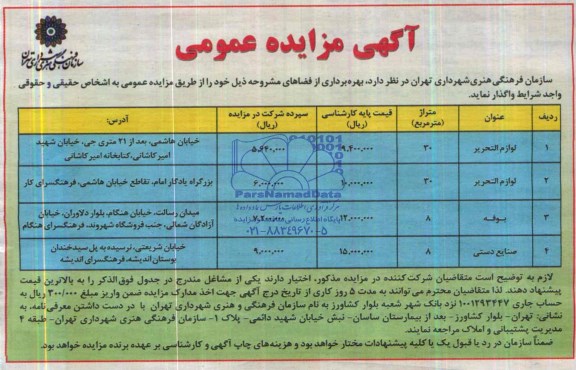 آگهی مزایده عمومی
سازمان فرهنگی هنری شهرداری تهران
سازمان فرهنگی هنری شهرداری تهران در نظر دارد، بهره‌برداری از فضاهای مشروحه ذیل خود را از طریق مزایده عمومی به اشخاص حقیقی و حقوقی
واجد شرایط واگذار نماید.
ردیف عنوان متراژ (مترمربع) قیمت پایه کارشناسی (ریال) سپرده شرکت در مزایده (ریال) آدرس:
۱ لوازم التحریر ۳۰ ۹،۴۰۰،۰۰۰ ۵،۶۴۰،۰۰۰ خیابان هاشمی، بعد از ۲۱ متری جی، خیابان شهید
امیرکاشانی، کتابخانه امیرکاشانی
۲ لوازم التحریر ۳۰ ۱۰،۰۰۰،۰۰۰ ۶،۰۰۰،۰۰۰ بزرگراه یادگار امام، تقاطع خیابان هاشمی، فرهنگسرای کار
۳ بوفه ۸ ۱۲،۰۰۰،۰۰۰ ۷،۲۰۰،۰۰۰ میدان رسالت، خیابان هنگام، بلوار دلاوران، خیابان
آزادگان شمالی، جنب فروشگاه شهروند، فرهنگسرای هنگام
۴ صنایع دستی ۸ ۱۵،۰۰۰،۰۰۰ ۹،۰۰۰،۰۰۰ خیابان شریعتی، نرسیده به پل سیدخندان
بوستان اندیشه، فرهنگسرای اندیشه
ParsNamadData
۰۲۱-۸۸۳۴۹۶۷۰-۵
لازم به توضیح است متقاضیان شرکت‌کننده در مزایده مذکور، اختیار دارند یکی از مشاغل مندرج در جدول فوق‌الذکر را به بالاترین قیمت
پیشنهاد دهند. لذا متقاضیان محترم می توانند به مدت ۵ روز کاری از تاریخ درج آگهی جهت اخذ مدارک مزایده ضمن واریز مبلغ ۳۰۰/۰۰۰ ریال به
حساب جاری ۱۰۰۱۲۹۳۴۴۷ نزد بانک شهر شعبه بلوار کشاورز به نام سازمان فرهنگی و هنری شهرداری تهران با در دست داشتن معرفی‌نامه به
نشانی: تهران- بلوار کشاورز- بعد از بیمارستان ساسان- نبش خیابان شهید دائمی- پلاک ۱- سازمان فرهنگی هنری شهرداری تهران- طبقه ۴
مدیریت پشتیبانی و املاک مراجعه نمایند.
ضمناً سازمان در رد یا قبول یک یا کلیه پیشنهادات مختار خواهد بود و هزینه‌های چاپ آگهی و کارشناسی بر عهده برنده مزایده خواهد بود.